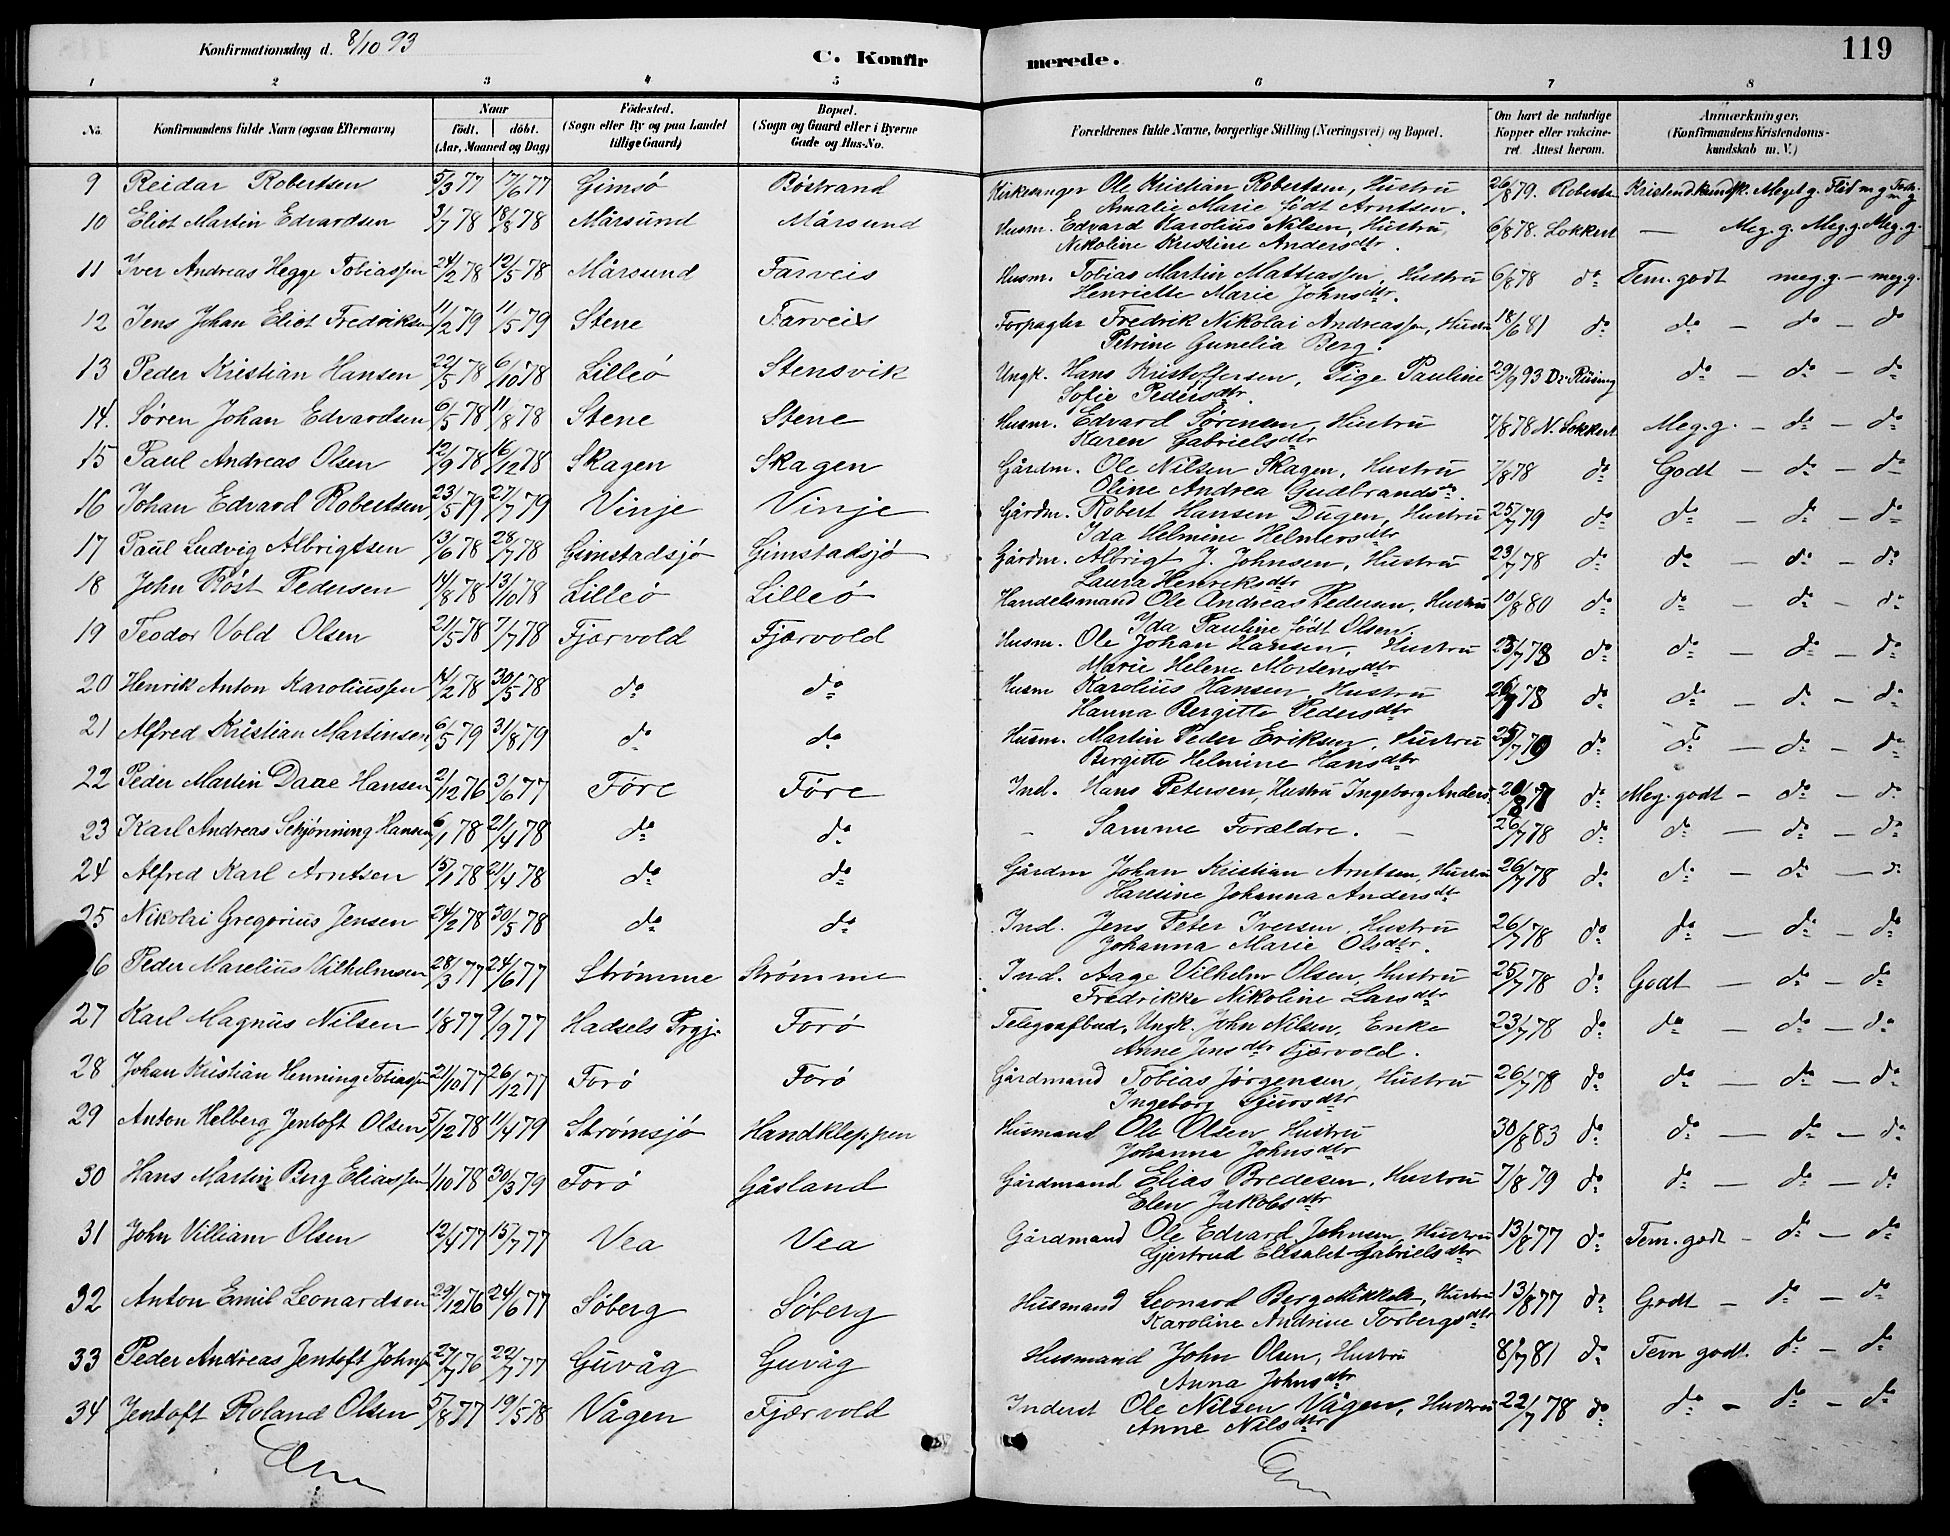 Konfirmationsdag d. 8/10 93
C. Konfirmerede.
119
1 2 3 4 5 6 7 8
No. Konfirmandens fulde Navn (ogsaa Efternavn) Naar født. døbt. (Aar, Maaned og Dag) Fødested. (Sogn eller By og paa Landet tillige Gaard) Bopæl. (Sogn og Gaard eller i Byerne Gade og Hus-No. Forældrenes fulde Navne, borgerlige Stilling (Næringsvei) og Bopæl. Om havt de naturlige Kopper eller vakcineret. Attest herom. Anmærkninger. (Konfirmandens Kristendomskundskab m. V.)
9 Reidar Robertsen 5/3 77 17/6 77 Gimsö Böstrand Kirkesanger Ole Kristian Robertsen, Hustru 26/8 79. Kristendkundsk. Meget g. Flid m g
Amalie Marie födt Arntsen.
10 Eliot Martin Edvardsen 3/7 78 18/8 78 Mårsund Mårsund Husm. Edvard Karolius Nilsen, Hustru 6/8 78. Lokkert — Meg. g. Meg. g. Meg. g.
Nikoline Kristine Andersdtr.
11 Iver Andreas Hegge Tobiassen 24/2 78 12/5 78 Mårsund Farveis Husm. Tobias Martin Mattiassen, Hustru 6/8 78 do Tem. godt meg. g. — meg. g.
Henriette Marie Johnsdtr.
12 Jens Johan Eliot Fredriksen 11/2 79 11/5 79 Stene Farveis Forpagter Fredrik Nikolai Andreassen, Hustru 18/6 81 do do — do — do
Petrine Gunelia Berg.
13 Peder Kristian Hansen 22/5 78 6/10 78 Lilleö Stensvik Ungk. Hans Kristoffersen, Pige Pauline 29/9 93 Dr. Riising do — do — do
Sofie Pedersdtr.
14. Søren Johan Edvardsen 6/5 78 11/8 78 Stene Stene Husm. Edvard Sørensen, Hustru 7/8 78 N. Lokkert Meg. g. — do — do
Karen Gabrielsdtr
15 Paul Andreas Olsen 12/9 78 16/12 78 Skagen Skagen Gårdm. Ole Nilsen Skagen, Hustru 7/8 78 do Godt — do — do
Oline Andrea Gudbrandsdr.
16 Johan Edvard Robertsen 23/5 79 27/7 79 Vinje Vinje Gårdm. Robert Hansen Dugen, Hustru 25/7 79 do do — do — do
Ida Helmine Helmersdtr
17 Paul Ludvig Albrigtsen 13/6 78 28/7 78 Gimstadsjö Gimstadsjö Gårdm. Albrigt J. Johnsen, Hustru 23/7 78 do do — do — do
Laura Henriksdtr
18 John Röst Pedersen 14/8 78 13/10 78 Lilleö Lilleö Handelsmand Ole Andreas Pedersen, Hustru 10/8 80 do do — do — do
Ida Pauline födt Olsen.
19 Teodor Vold Olsen 21/5 78 7/7 78 Fjærvold Fjærvold Husm. Ole Johan Hansen, Hustru 23/7 78 do do — do — do
Marie Helene Mortensdtr
20 Henrik Anton Karoliussen 14/2 78 30/5 78 do do Husm Karolius Hansen, Hustru 26/7 78 do do — do — do
Hanna Bergitte Pedersdtr
21 Alfred Kristian Martinsen 6/5 79 31/8 79 do do Husm. Martin Peder Eriksen, Hustru 25/7 79 do do — do — do
Bergitte Helmine Hansdtr
22 Peder Martin Daae Hansen 2/12 76 3/6 77 Före Före Ind. Hans Petersen, Hustru Ingeborg Anders. 20/8 77 do Meg. godt — do — do
23 Karl Andreas Schjønning Hansen 6/1 78 21/4 78 do do — Samme Forældre. — 26/7 78 do do — do — do
24 Alfred Karl Arntsen 15/1 78 21/4 78 do do Gårdm Johan Kristian Arntsen, Hustru 26/7 78 do do — do — do
Hansine Johanna Andersdtr
25 Nikolai Gregorius Jensen 24/2 78 30/5 78 do do Ind. Jens Peter Iversen, Hustru 26/7 78 do do — do — do
Johanna Marie Olsdtr.
26 Peder Marelius Vilhelmsen 28/3 77 24/6 77 Strømme Strømme Ind. Aage Vilhelm Olsen, Hustru 25/7 78 do Godt — do — do
Fredrikke Nikoline Larsdtr
27 Karl Magnus Nilsen 1/8 77 9/9 77 Hadsels Prgj. Forö Telegrafbud, Ungk. John Nilsen, Enke 23/7 78 do do — do — do
Anne Jensdtr Fjærvold.
28 Johan Kristian Henning Tobiassen 21/10 77 26/12 77 Forö Forö Gårdmand Tobias Jørgensen, Hustru 26/7 78 do do — do — do
Ingeborg Sjursdtr
29 Anton Helberg Jentoft Olsen 5/12 78 11/4 79 Strømsjö Handkleppen Husmand Ole Olsen, Hustru 30/8 83 do do — do — do
Johanna Johnsdtr
30 Hans Martin Berg Eliassen 1/10 78 30/3 79 Forö Gåsland Gårdmand Elias Bredesen, Hustru 7/8 79 do do — do — do
Elen Jakobsdtr
31 John Villiam Olsen 12/4 77 15/7 77 Vea Vea Gårdmand Ole Edvard Johnsen, Hustru 13/8 77 do Tem. godt — do — do
Gjertrud Elisabet Gabrielsdtr
32 Anton Emil Leonardsen 29/12 76 24/6 77 Söberg Söberg Husmand Leonard Berg Mikkels., Hustru 13/8 77 do Godt — do — do
Karoline Andrine Torbergsdtr
33 Peder Andreas Jentoft Johns. 27/7 76 22/7 77 Guvåg Guvåg Husmand John Olsen, Hustru 8/7 81 do Tem godt. do — do
Anna Johnsdtr
34 Jentoft Roland Olsen 5/8 77 19/5 78 Vågen Fjærvold Inderst Ole Nilsen Vågen, Hustru 22/7 78 do do — do — do
Anne Nilsdtr